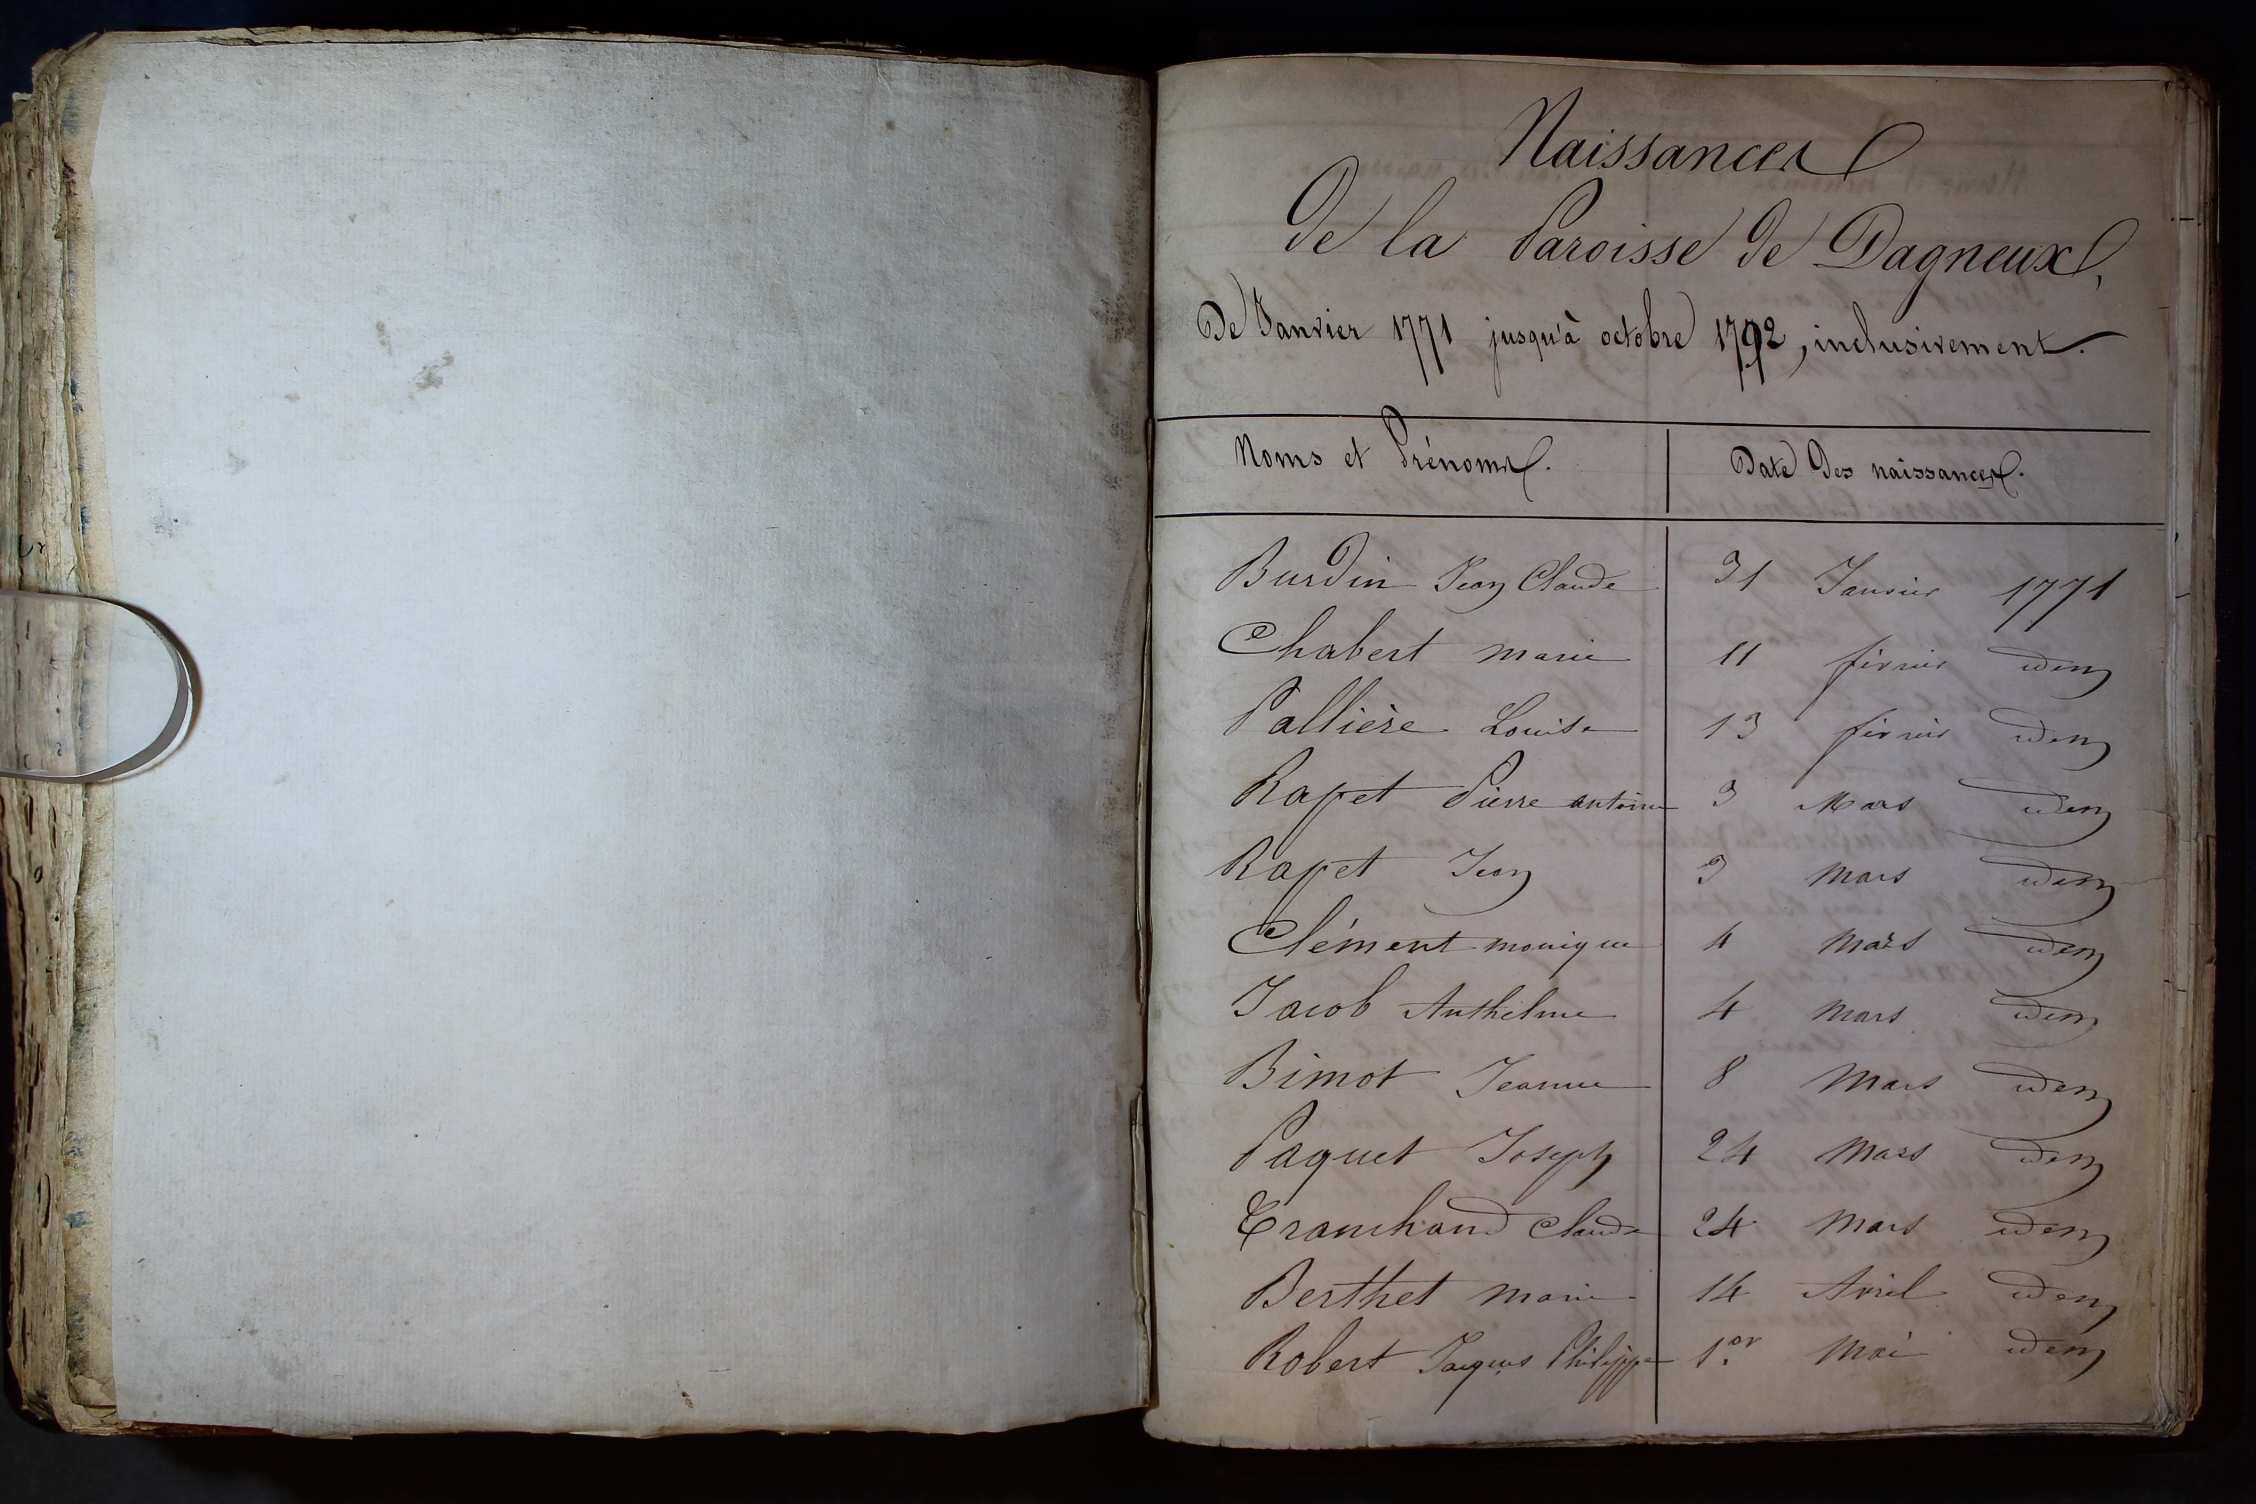 Naissances
De la Paroisse de Dagneux,
De Janvier 1771 jusqu'à octobre 1792, inclusivement.
Noms et Prénoms. Date des naissances.
Burdin Jean Claude 31 Janvier 1771
Chabert marie 11 février idem
Pallière Louise 13 février idem
Rapet Pierre antoine 3 Mars idem
Rapet Jean 3 mars idem
Clément monique 4 mars idem
Jacob Anthelme 4 mars idem
Bimot Jeanne 8 mars idem
Paquet Joseph 24 mars idem
Tranchand Claude 24 mars idem
Berthet marie 14 Avril idem
Robert Jacques Philippe 1er mai idem